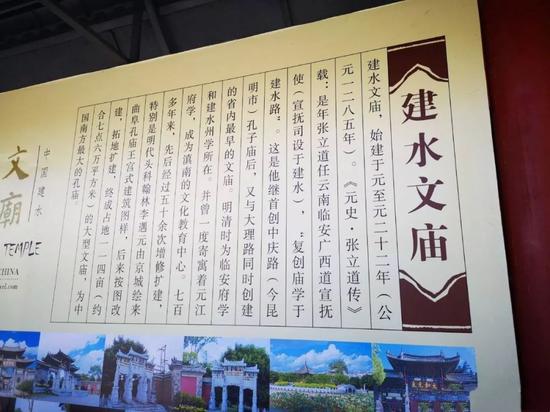 建水文庙
建水文庙，始建于元至元二十二年（公
元一二八五年）。《元史·张立道传》
载：是年张立道任云南临安广西道宣抚
使（宣抚司设于建水），“复创庙学于
建水路”。这是他继首创中庆路（今昆
明市）孔子庙后，又与大理路同时创建
的省内最早的文庙。明清时为临安府学
和建水州学所在。并曾一度寄寓着元江
府学，成为滇南的文化教育中心。七百
多年来，先后经过五十余次增修扩建，
特别是明代头科翰林李遇元由京城绘来
曲阜孔庙王宫式建筑图样，后来按图改
建，拓地扩建，终成占地一一四亩（约
合七点六万平方米）的大型文庙，为中
国南方最大的孔庙。
中国建水
文廟
TEMPLE
CHINA